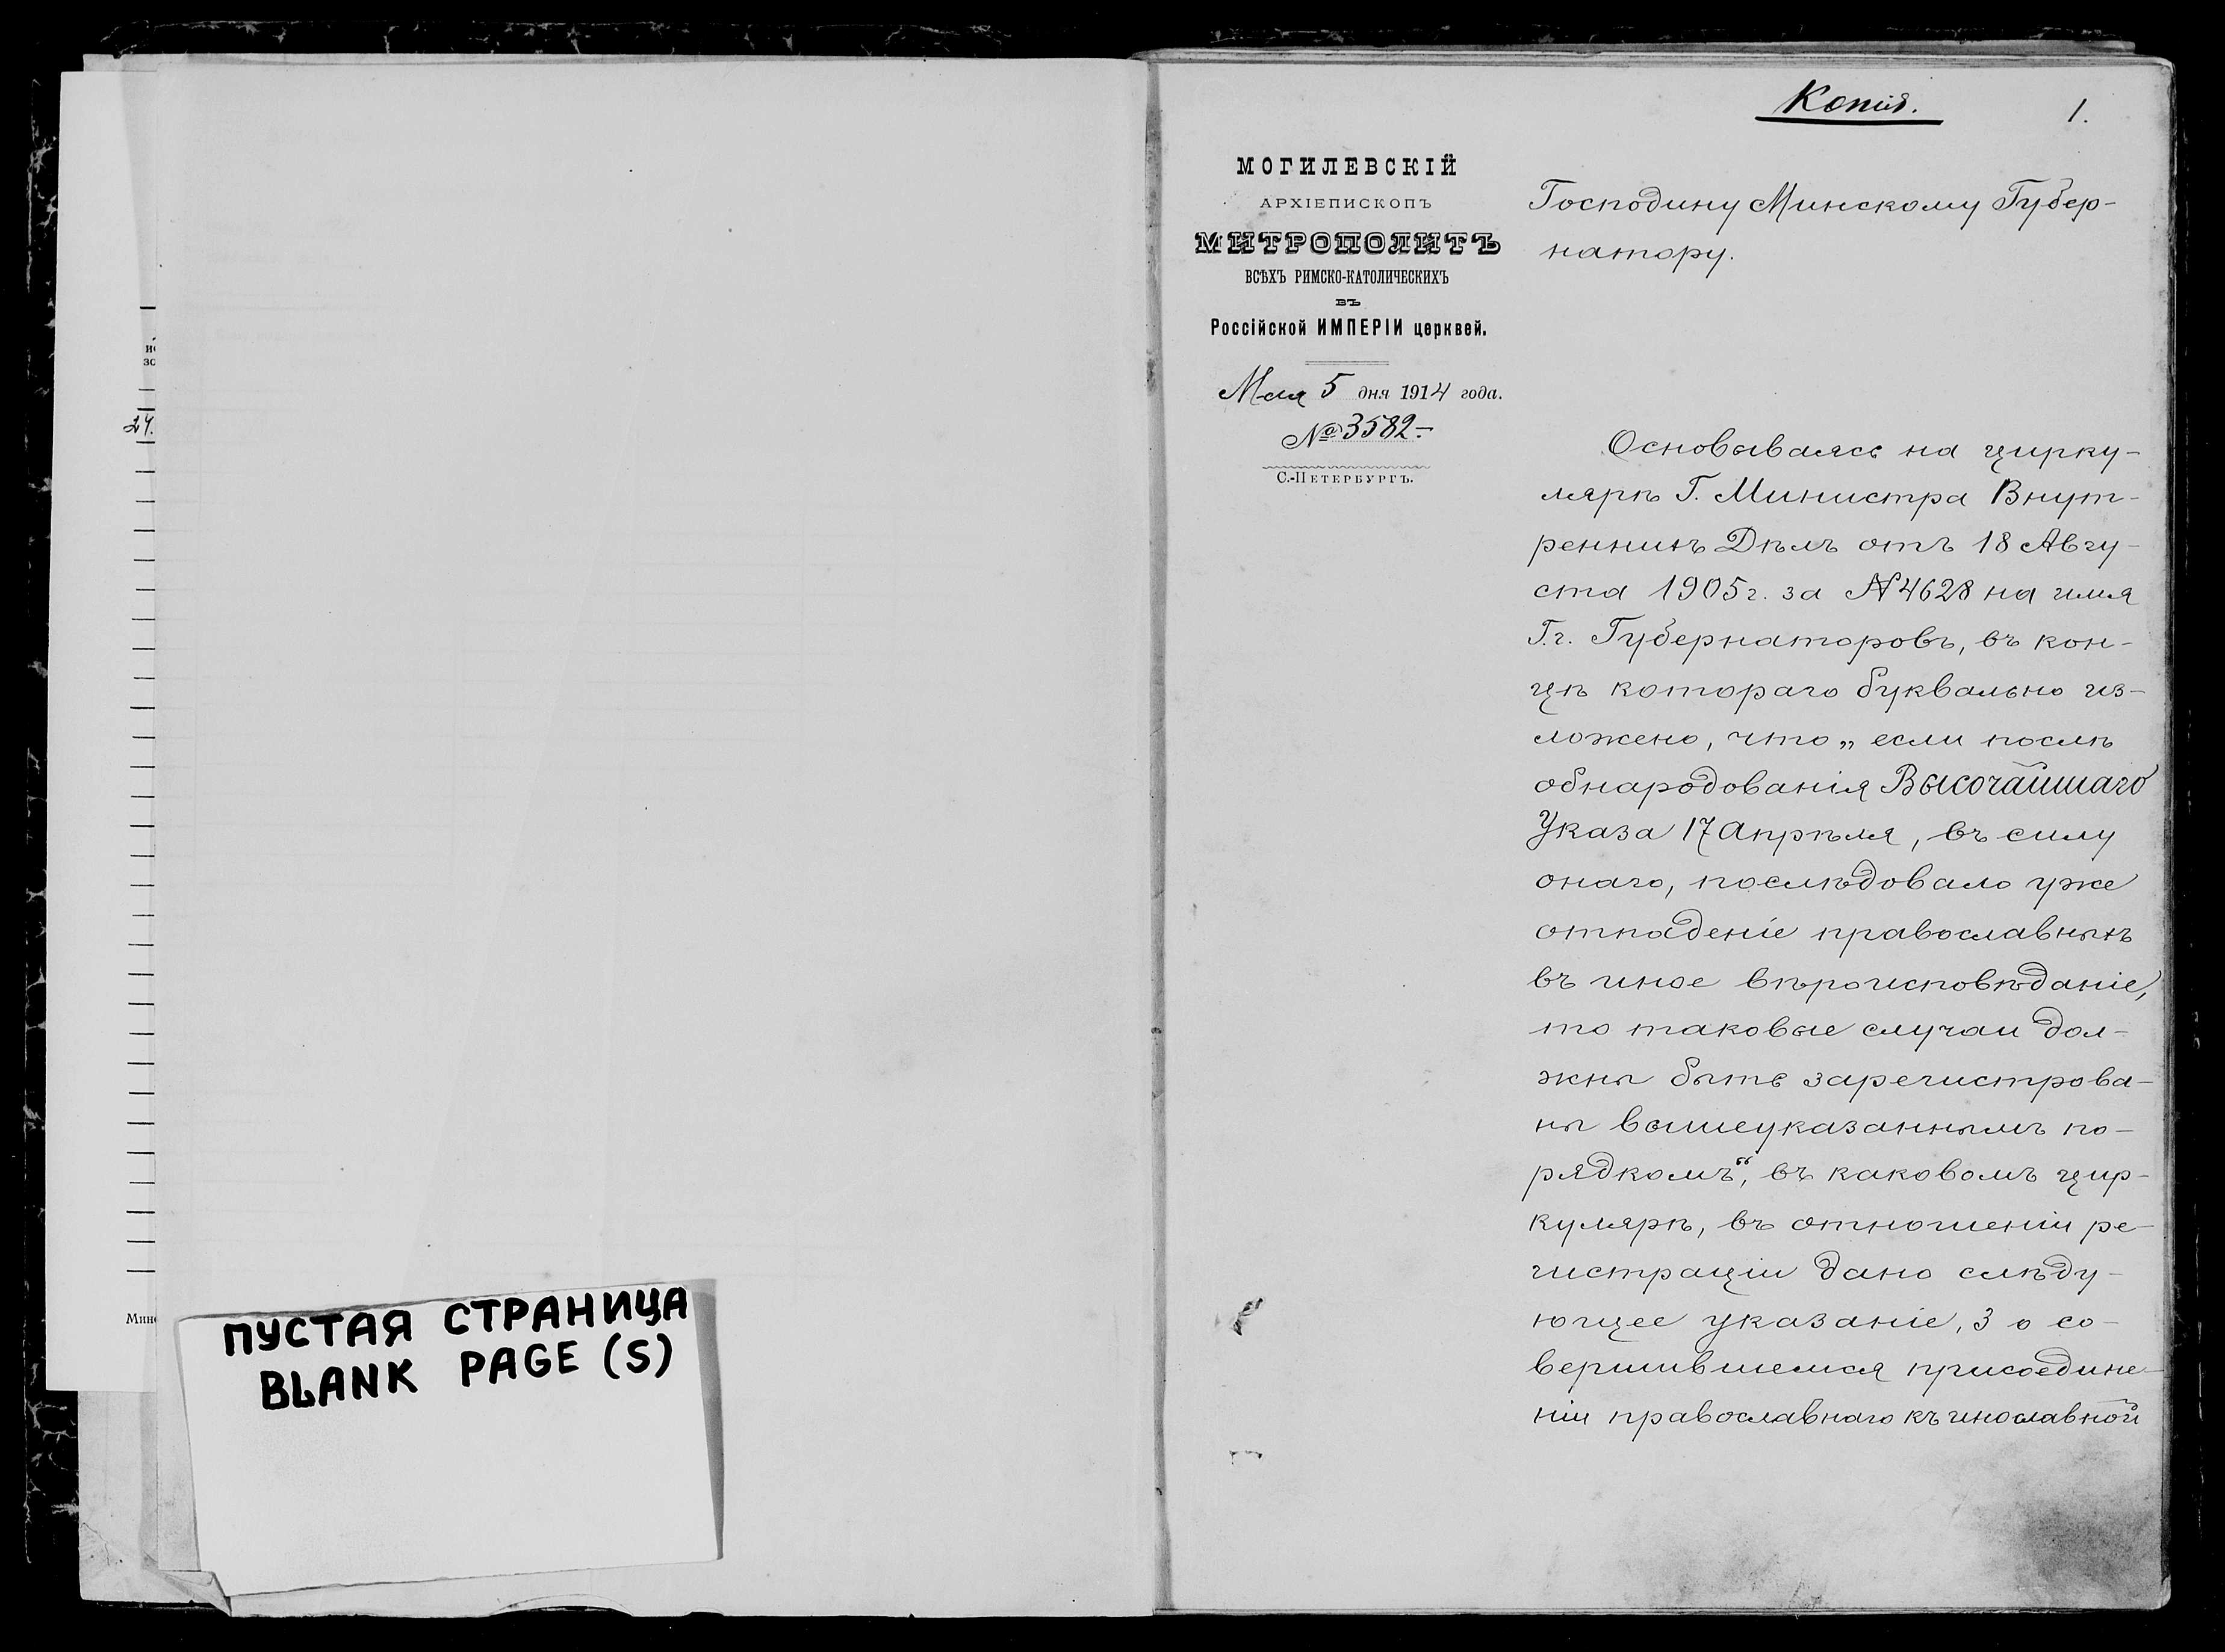 24.
Мин
ПУСТАЯ СТРАНИЦА
BLANK PAGE (S)
Копія.
1.
МОГИЛЕВСКІЙ
АРХІЕПИСКОПЪ
МИТРОПОЛИТЪ
ВСѢХЪ РИМСКО-КАТОЛИЧЕСКИХЪ
ВЪ
Россійской ИМПЕРІИ церквей.
Мая 5 дня 1914 года.
№ 3582.-
С.-ПЕТЕРБУРГЪ.
Господину Минскому Губер-
натору.
Основываясь на цирку-
лярѣ Г. Министра Внут-
реннихъ Дѣлъ отъ 18 Авгу-
ста 1905 г. за № 4628 на имя
Г.г. Губернаторовъ, въ кон-
цѣ котораго буквально из-
ложено, что „если послѣ
обнародованія Высочайшаго
Указа 17 Апрѣля, въ силу
онаго, послѣдовало уже
отпаденіе православныхъ
въ иное вѣроисповѣданіе,
то таковые случаи дол-
жны быть зарегистрова-
ны вышеуказаннымъ по-
рядкомъ“, въ каковомъ цир-
кулярѣ, въ отношеніи ре-
гистраціи дано слѣду-
ющее указаніе, 3 о со-
вершившемся присоедине-
ніи православнаго къ инославной